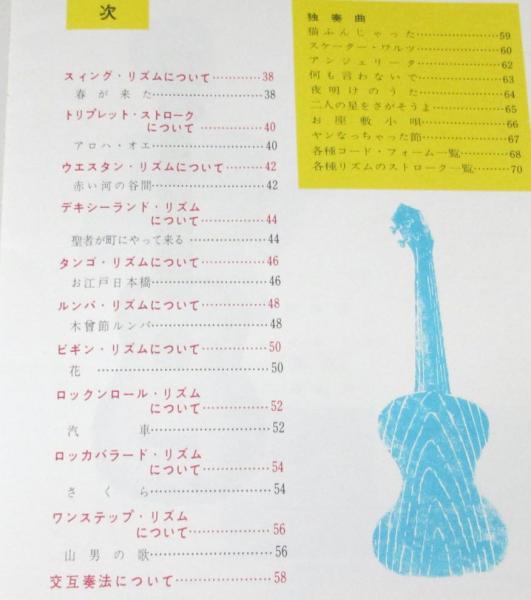 次
スィング・リズムについて…………38
春が来た……………………38
トリプレット・ストローク
について…………40
アロハ・オエ………………40
ウエスタン・リズムについて………42
赤い河の谷間………………42
デキシーランド・リズム
について…………44
聖者が町にやって来る………………44
タンゴ・リズムについて……………46
お江戸日本橋………………46
ルンバ・リズムについて……………48
木曾節ルンバ………………48
ビギン・リズムについて……………50
花……………………50
ロックンロール・リズム
について…………52
汽車…………………52
ロッカバラード・リズム
について…………54
さくら………………54
ワンステップ・リズム
について…………56
山男の歌……………………56
交互奏法について……………………58
独奏曲
猫ふんじゃった……………59
スケーター・ワルツ…………60
アンジェリータ………………62
何も言わないで………………63
夜明けのうた…………………64
二人の星をさがそうよ………65
お座敷小唄……………………66
ヤンなっちゃった節…………67
各種コード・フォーム一覧……68
各種リズムのストローク一覧……70